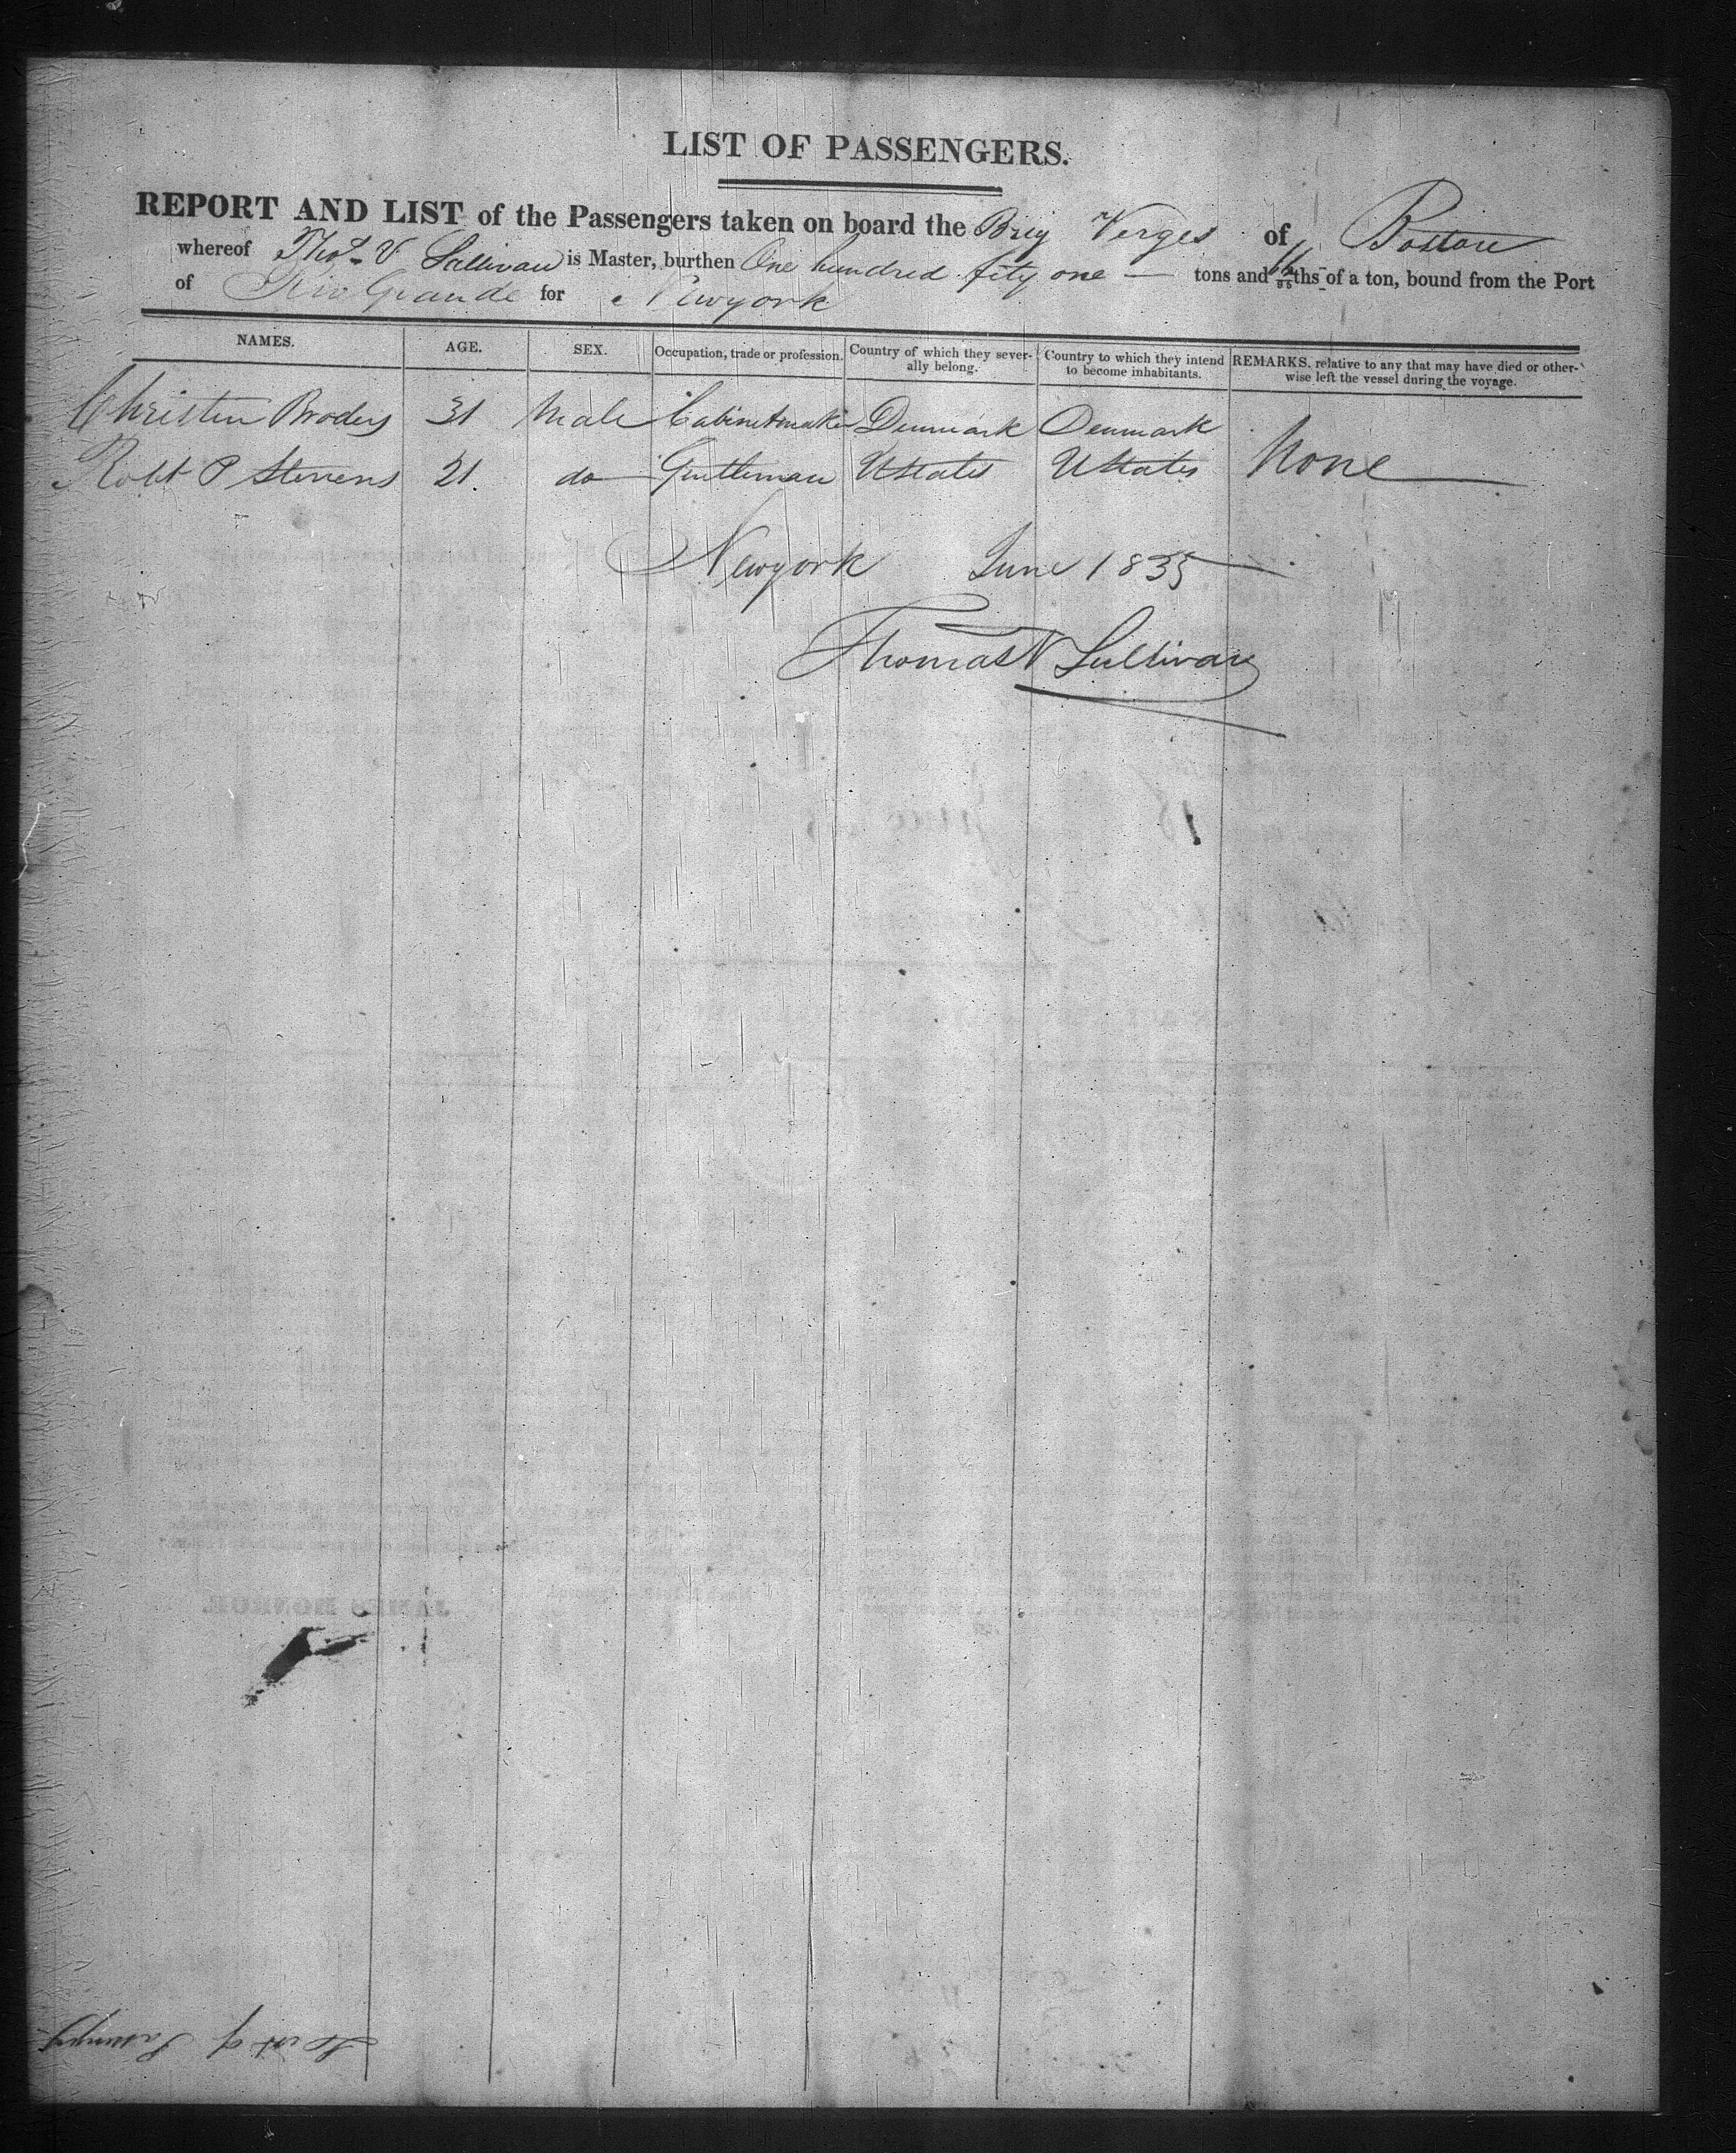 LIST OF PASSENGERS.
REPORT AND LIST of the Passengers taken on board the Brig Verges of Boston
whereof Thos. V Sullivan is Master, burthen One hundred fity one — tons and /95ths of a ton, bound from the Port
of Rio Grande for Newyork
NAMES. AGE. SEX. Occupation, trade or profession. Country of which they sever- Country to which they intend REMARKS, relative to any that may have died or other-
ally belong. to become inhabitants. wise left the vessel during the voyage.
Christen Broders 31 Male Cabinetmaker Denmark Denmark
Robt P Stevens 21. do Gentleman UStates UStates None
Newyork June 1835
Thomas V Sullivan
JAMES MONROE.
List of Passengers